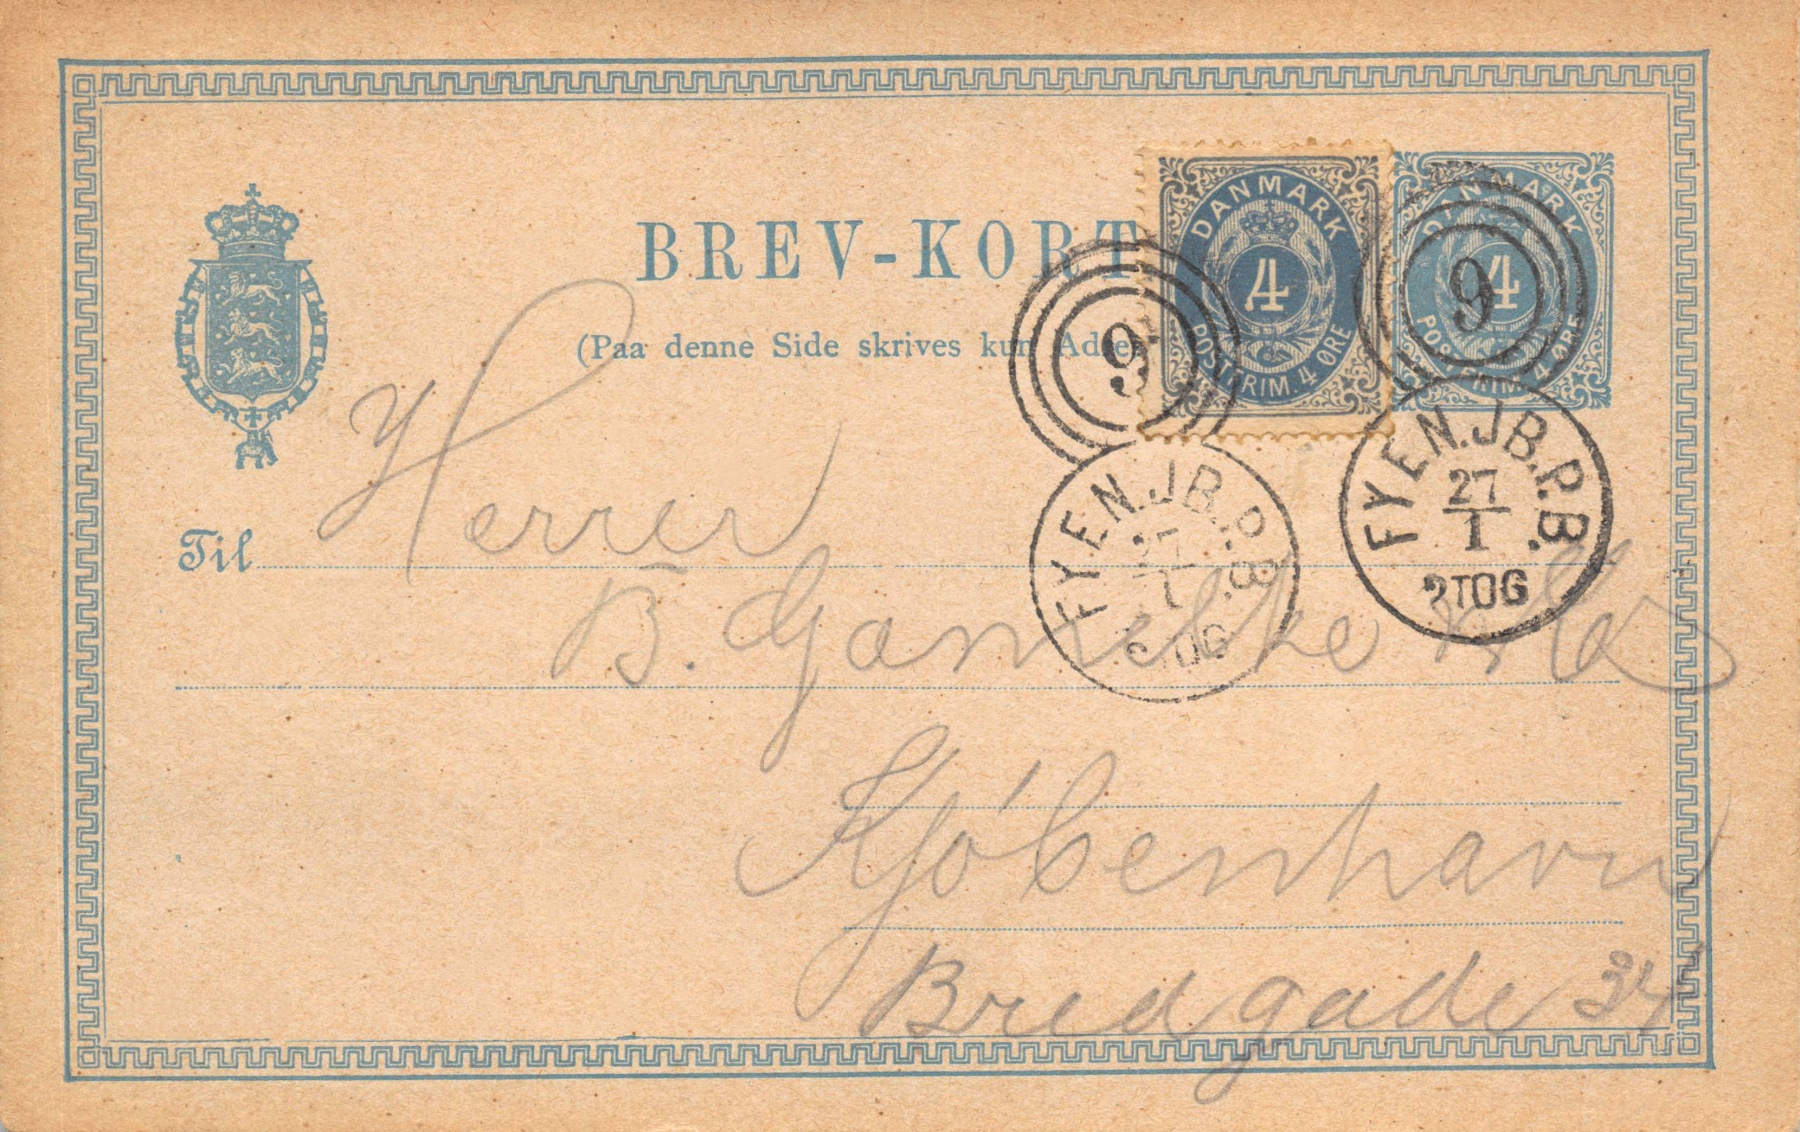 BREV-KORT
(Paa denne Side skrives kun Adre
DANMARK
4
POSTFRIM. 4 ØRE
DANMARK
4
POSTFRIM. 4 ØRE
9
9
FYEN.JB.P.B.
27
1
2TOG
FYEN.JB.P.B.
27
1
2TOG
Til
Herrer
B. Gamelke
Kjöbenhavn
Bredgade 34